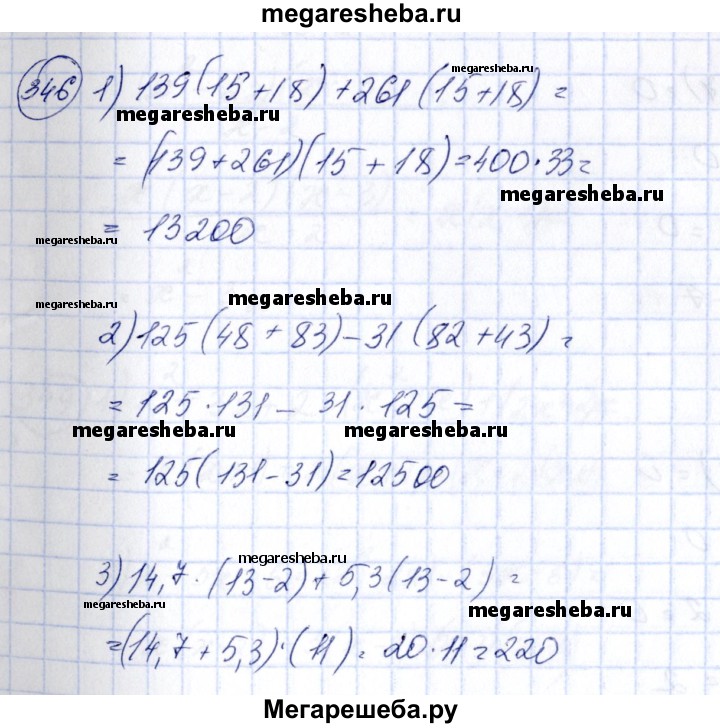 megaresheba.ru
346 1) 139(15+18)+261(15+18)=
megaresheba.ru
megaresheba.ru
=(139+261)(15+18)=400·33=
megaresheba.ru
= 13200
megaresheba.ru
megaresheba.ru
megaresheba.ru
2) 125(48+83)-31(82+43)=
= 125·131-31·125=
megaresheba.ru megaresheba.ru
= 125(131-31)=12500
megaresheba.ru
3) 14,7·(13-2)+5,3(13-2)=
megaresheba.ru
megaresheba.ru
=(14,7+5,3)·(11)=20·11=220
Мегарешеба.ру